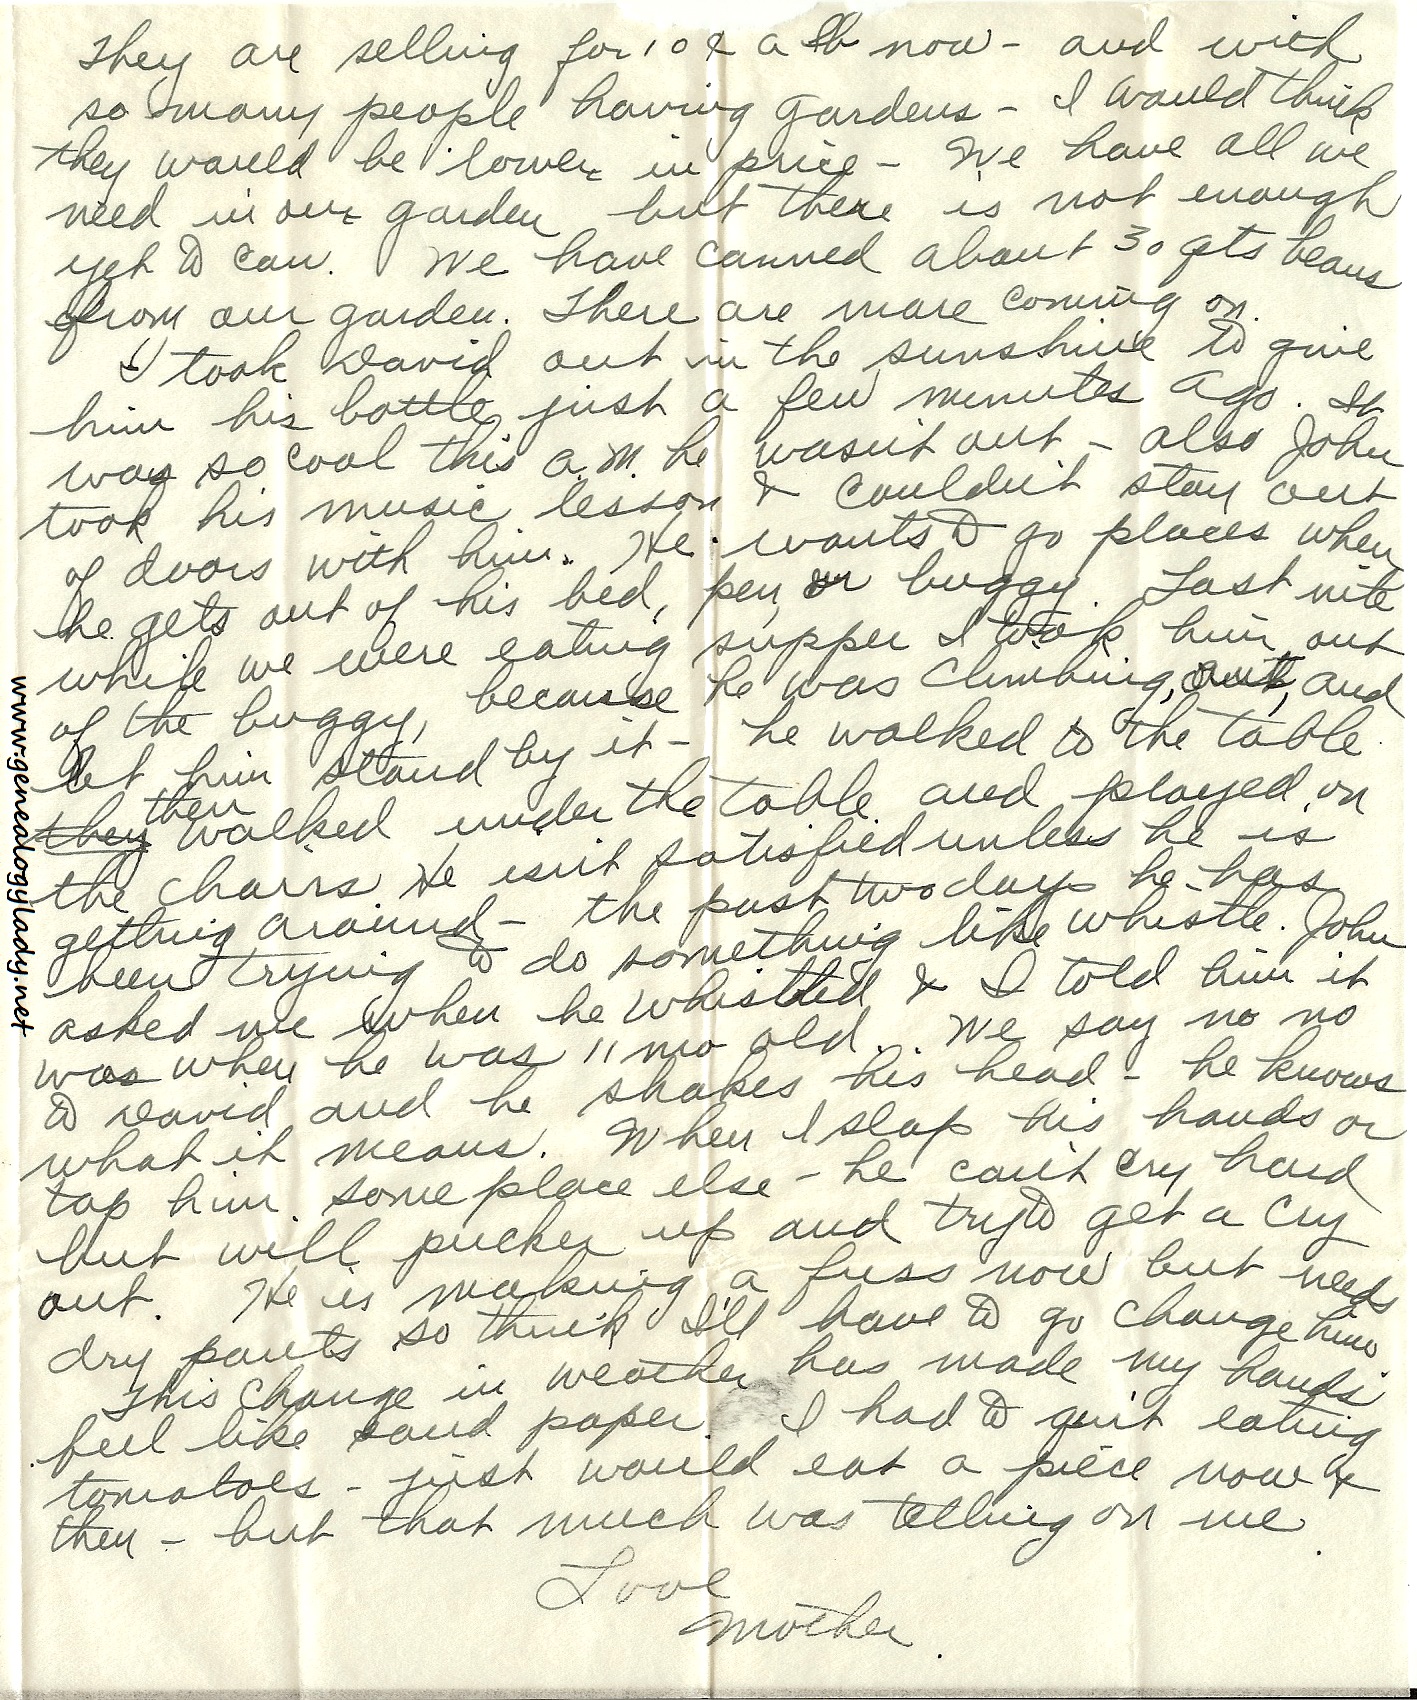 They are selling for 10¢ a lb now - and with
so many people having gardens - I would think
they would be lower in price - We have all we
need in our garden but there is not enough
yet to can. We have canned about 30 qts beans
from our garden. There are more coming on.
I took David out in the sunshine to give
him his bottle just a few minutes ago. It
was so cool this a.m. he wasn't out - also John
took his music lesson & couldn't stay out
of doors with him. He wants to go places when
he gets out of his bed, pen, or buggy. Last nite
while we were eating supper I took him out
of the buggy, because he was climbing, out, and
let him stand by it - he walked to the table
they then walked under the table and played on
the chairs He isn't satisfied unless he is
getting around - the past two days he has
been trying to do something like whistle. John
asked me when he whistled & I told him it
was when he was 11 mo old. We say no no
to David and he shakes his head - he knows
what it means. When I slap his hands or
tap him some place else - he can't cry hard
but will pucker up and try to get a cry
out. He is making a fuss now but needs
dry pants so think I'll have to go change him.
This change in weather has made my hands
feel like sand paper. I had to quit eating
tomatoes - just would eat a piece now &
then - but that much was telling on me.
Love
Mother.
www.genealogylady.net